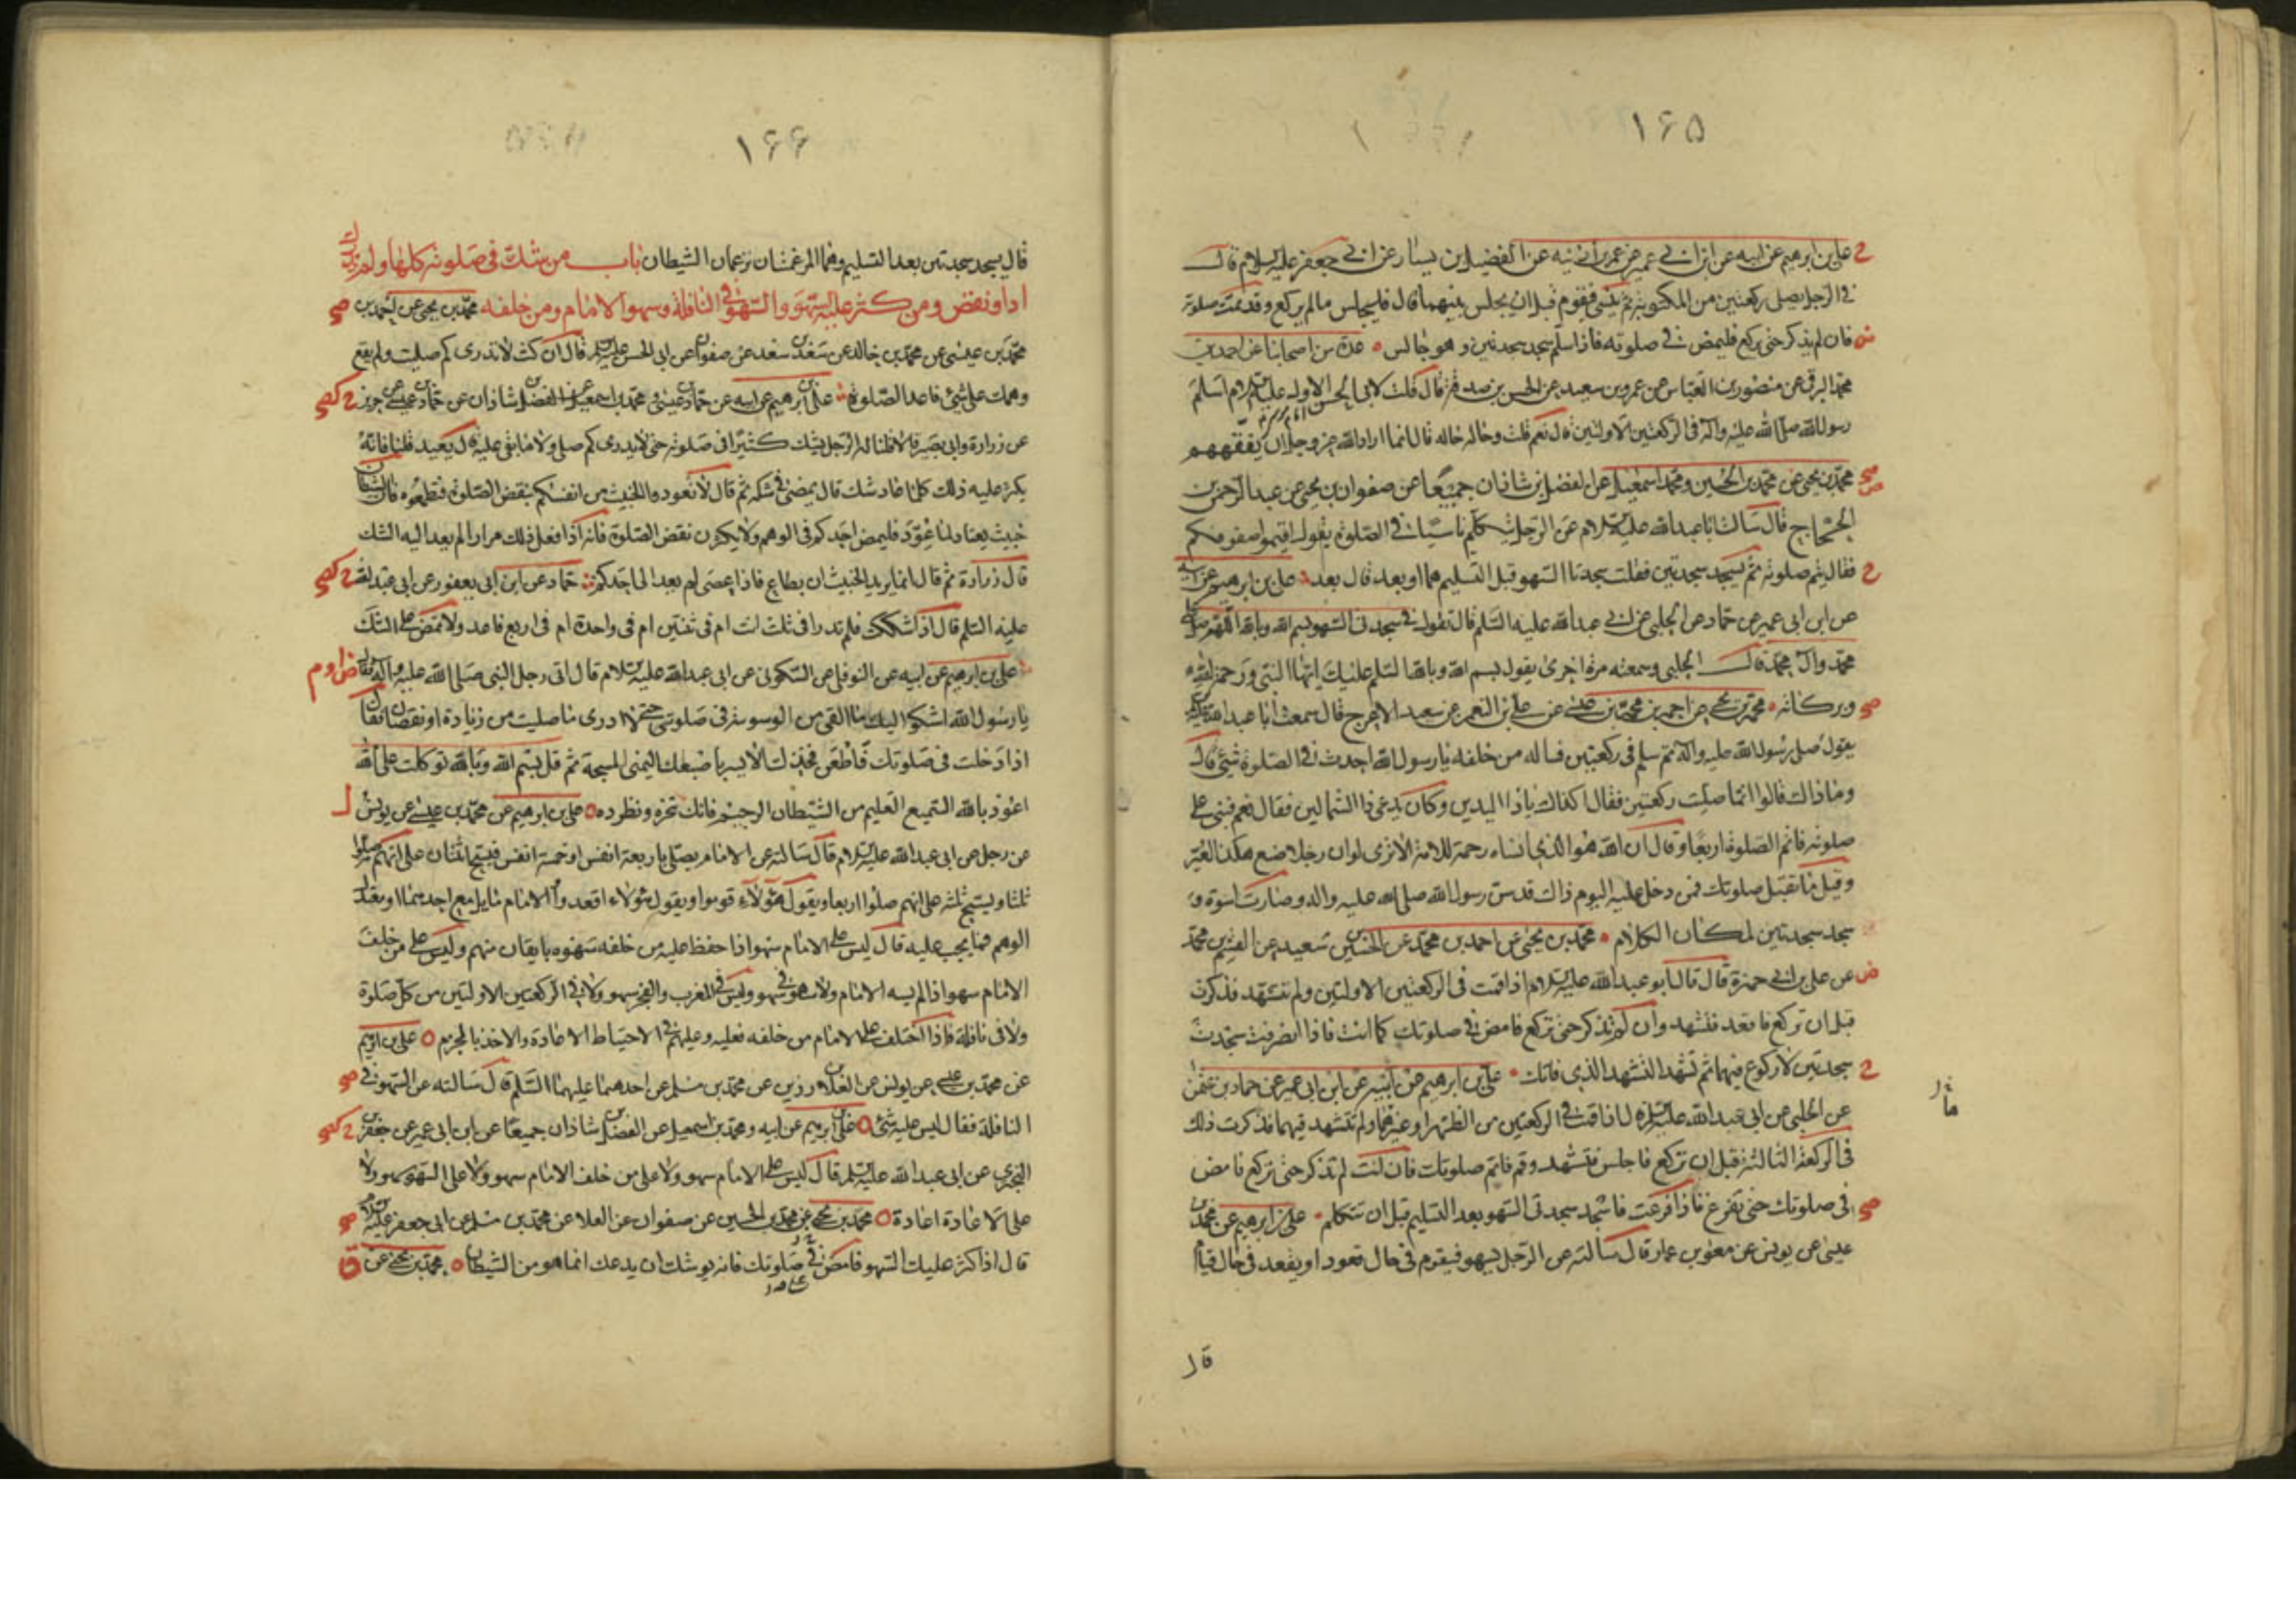 ۱۶۵
علي بن ابرهيم عن ابيه عن ابن ابي عمير عن عمر بن اذينه عن الفضيل بن يسار عن ابي جعفر عليه السلام قال
في الرجل يصلى ركعتين من المكتوبة ثم ينسى فيقوم قبل ان يجلس بينهما قال فليجلس ما لم يركع وقد تمت صلوته
فان لم يذكر حتى يركع فليمض في صلوته فاذا سلم سجد سجدتين وهو جالس عدة من اصحابنا عن احمد بن
محمد البرقي عن منصور بن العباس عن عمرو بن سعيد عن الحسن بن صدقة قال قلت لابي الحسن الاول عليه السلام اسلم
رسول الله صلى الله عليه وآله في الركعتين الاولتين قال نعم قلت وحاله حاله قال انما اراد الله عز وجل ان يفقههم
محمد بن يحيى عن محمد بن الحسين ومحمد اسمعيل عن الفضل بن شاذان جميعا عن صفوان بن يحيى عن عبد الرحمن بن
الحجاج قال سالت ابا عبد الله عليه السلام عن الرجل يتكلم ناسيا في الصلوة يقول اقيموا صفوفكم
فقال يتم صلوته ثم يسجد سجدتين فقلت سجدتا السهو قبل التسليم هما او بعد قال بعد علي بن ابرهيم عن ابيه
عن ابن ابي عمير عن حماد عن الحلبي عن ابي عبد الله عليه السلم قال تقول في سجدتى السهو بسم الله وبالله اللهم صل على
محمد وآل محمد قال الحلبي وسمعته مرة اخرى يقول بسم الله وبالله السلم عليك ايها النبي ورحمة الله
وبركاته محمد بن يحيى عن احمد بن محمد بن عيسى عن علي بن النعمن عن سعيد الاعرج قال سمعت ابا عبد الله عليه السلام
يقول صلى رسول الله عليه وآله ثم سلم في ركعتين فساله من خلفه يا رسول الله احدث في الصلوة شئ قال
وما ذاك قالوا انما صليت ركعتين فقال اكذاك يا ذا اليدين وكان يدعى ذا الشمالين فقال نعم فبنى على
صلوته فاتم الصلوة اربعا وقال ان الله هو الذي انساه رحمة للامة الا ترى لو ان رجلا صنع هكذا لعير
وقيل ما تقبل صلوتك فمن دخل عليه اليوم ذاك قد سن رسول الله صلى الله عليه واله وصارت اسوة و
سجد سجدتين لمكان الكلام محمد بن يحيى عن احمد بن محمد عن الحسين بن سعيد عن القسم بن محمد
عن علي بن ابي حمزة قال قال ابو عبد الله عليه السلام اذا قمت في الركعتين الاولتين ولم تتشهد فذكرت
قبل ان تركع فاقعد فتشهد وان لم تذكر حتى تركع فامض في صلوتك كما انت فاذا انصرفت سجدت
سجدتين لا ركوع فيهما ثم تشهد التشهد الذي فاتك علي بن ابرهيم عن ابيه عن ابن ابي عمير عن حماد بن عثمن
عن الحلبي عن ابي عبد الله عليه السلام قال اذا قمت في الركعتين من الظهر او غيرهما ولم تتشهد فيهما فذكرت ذلك
في الركعة الثالثة قبل ان تركع فاجلس فتشهد وقم فاتم صلوتك فان كنت لم تذكر حتى تركع فامض
في صلوتك حتى تفرغ فاذا فرغت فاسجد سجدتى السهو بعد التسليم قبل ان تتكلم علي بن ابرهيم عن محمد بن
عيسى عن يونس عن معوية بن عمار قال سالته عن الرجل يسهو فيقوم في حال قعود او يقعد في حال قيام
قال
۱۶۶
قال يسجد سجدتين بعد التسليم وهما المرغمتان ترغمان الشيطان باب من شك في صلوته كلها ولم يدر زاد
او نقص ومن كثر عليه السهو والسهو في النافلة وسهو الامام ومن خلفه محمد بن يحيى عن احمد بن
محمد بن عيسى عن محمد بن خالد عن سعد بن سعد عن صفوان عن ابي الحسن عليه السلام قال ان كنت لا تدرى كم صليت ولم يقع
وهمك على شئ فاعد الصلوة علي بن ابرهيم عن ابيه عن حماد بن عيسى ومحمد بن اسمعيل عن الفضل بن شاذان عن حماد بن عيسى عن حريز
عن زرارة وابي بصير قالا قلنا له الرجل يشك كثيرا في صلوته حتى لا يدرى كم صلى ولا ما بقى عليه قال يعيد قلنا فانه
يكثر عليه ذلك كلما عاد شك قال يمضي في شكه ثم قال لا تعودوا الخبيث من انفسكم بنقض الصلوة فتطمعوه فان الشيطان
خبيث يعتاد لما عود فليمض احدكم في الوهم ولا يكثرن نقض الصلوة فانه اذا فعل ذلك مرارا لم يعد اليه الشك
قال زرارة ثم قال انما يريد الخبيث ان يطاع فاذا عصى لم يعد الى احدكم حماد عن ابن ابي يعفور عن ابي عبد الله
عليه السلم قال اذا شككت فلم تدر افى ثلث انت ام في ثنتين ام في واحدة ام في اربع فاعد ولا تمض على الشك
علي بن ابرهيم عن ابيه عن النوفلي عن السكوني عن ابي عبد الله عليه السلام قال اتى رجل النبي صلى الله عليه وآله فقال
يا رسول الله اشكو اليك ما القى من الوسوسة في صلوتي حتى لا ادرى ما صليت من زيادة او نقصان فقال
اذا دخلت في صلوتك فاطعن فخذك الايسر باصبعك اليمنى المسبحة ثم قل بسم الله وبالله توكلت على الله
اعوذ بالله السميع العليم من الشيطان الرجيم فانك تنحره وتطرده علي بن ابرهيم عن محمد بن عيسى عن يونس
عن رجل عن ابي عبد الله عليه السلام قال سالته عن الامام يصلى باربعة انفس او خمسة انفس فيسبح اثنان على انهم صلوا
ثلثا ويسبح ثلثة على انهم صلوا اربعا ويقول هؤلاء قوموا ويقول هؤلاء اقعدوا والامام مايل مع احدهما او معتدل
الوهم فما يجب عليه قال ليس على الامام سهو اذا حفظ عليه من خلفه سهوه بايقان منهم وليس على من خلف
الامام سهو اذا لم يسه الامام ولا سهو في سهو وليس في المغرب والفجر سهو ولا في الركعتين الاولتين من كل صلوة
ولا في نافلة فاذا اختلف على الامام من خلفه فعليه وعليهم في الاحتياط الاعادة والاخذ بالجزم علي بن ابرهيم
عن محمد بن عيسى عن يونس عن العلاء بن رزين عن محمد بن مسلم عن احدهما عليهما السلم قال سالته عن السهو في
النافلة فقال ليس عليه شئ علي بن ابرهيم عن ابيه ومحمد بن اسمعيل عن الفضل بن شاذان جميعا عن ابن ابي عمير عن حفص بن
البختري عن ابي عبد الله عليه السلم قال ليس على الامام سهو ولا على من خلف الامام سهو ولا على السهو سهو ولا
على الاعادة اعادة محمد بن يحيى عن محمد بن الحسين عن صفوان عن العلا عن محمد بن مسلم عن ابي جعفر عليه السلام
قال اذا كثر عليك السهو فامض في صلوتك فانه يوشك ان يدعك انما هو من الشيطان محمد بن يحيى عن